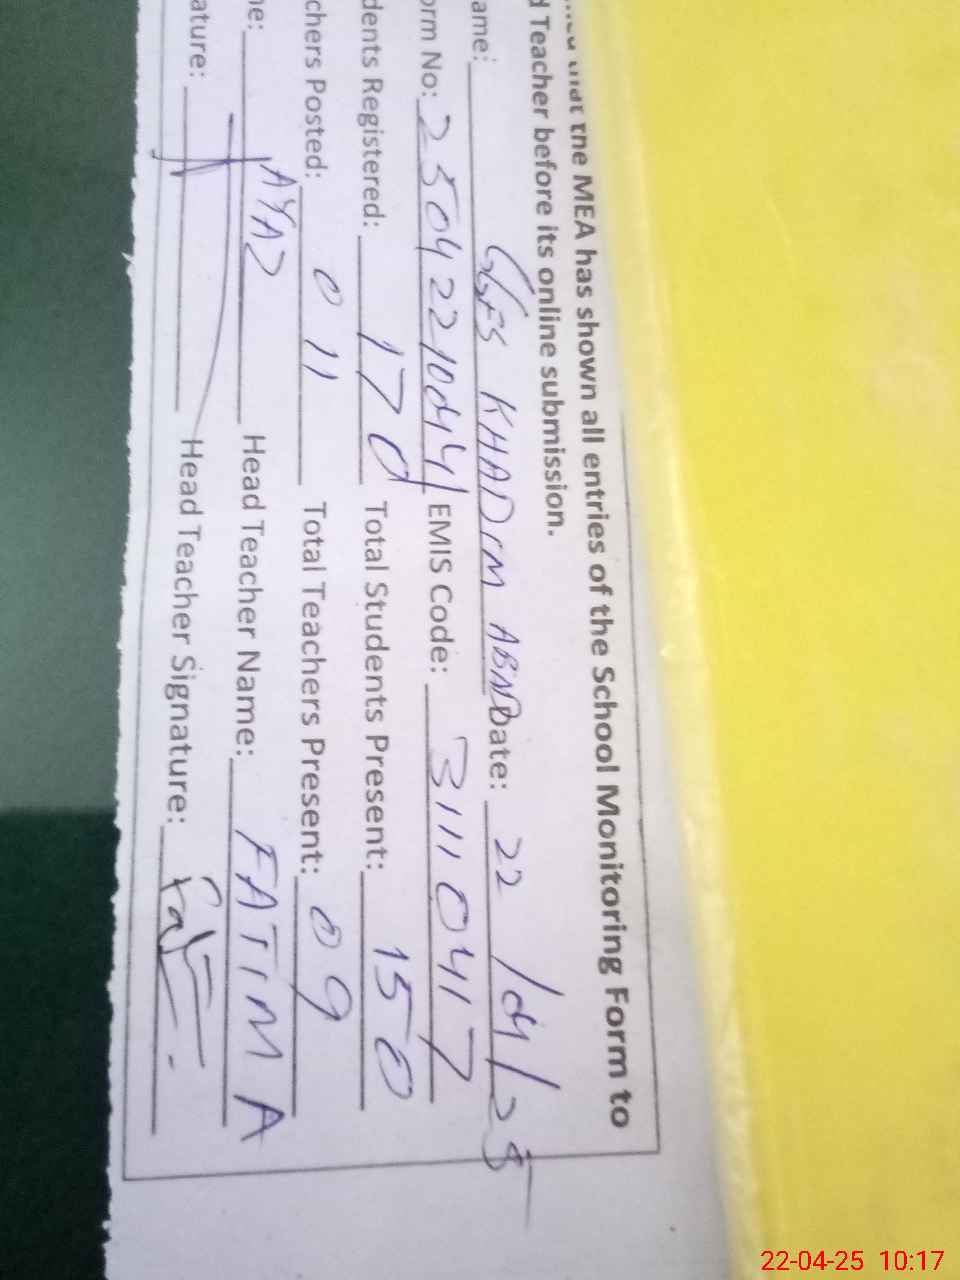 the MEA has shown all entries of the School Monitoring Form to
d Teacher before its online submission.
ame: GGES KHADIM ABAD Date: 22/04/25
orm No: 2504221044 EMIS Code: 31110417
dents Registered: 170 Total Students Present: 150
chers Posted: 011 Total Teachers Present: 09
me: AYAZ Head Teacher Name: FATIMA
ature: Head Teacher Signature:
22-04-25 10:17